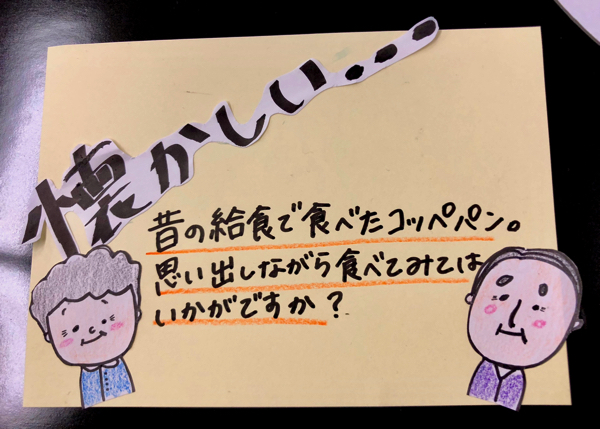 懐かしい...
昔の給食で食べたコッペパン。
思い出しながら食べてみては
いかがですか?